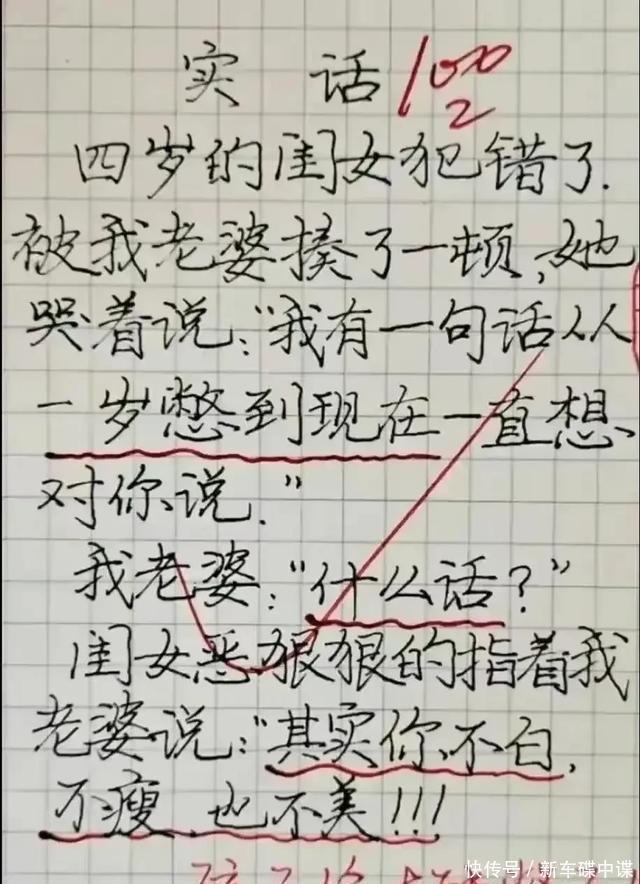 实 话 100
2
四岁的闺女犯错了.
被我老婆揍了一顿,她
哭着说:"我有一句话从
一岁憋到现在一直想
对你说."
我老婆:"什么话?"
闺女恶狠狠的指着我
老婆说:"其实你不白,
不瘦,也不美!!!
快传号/新车碟中谍